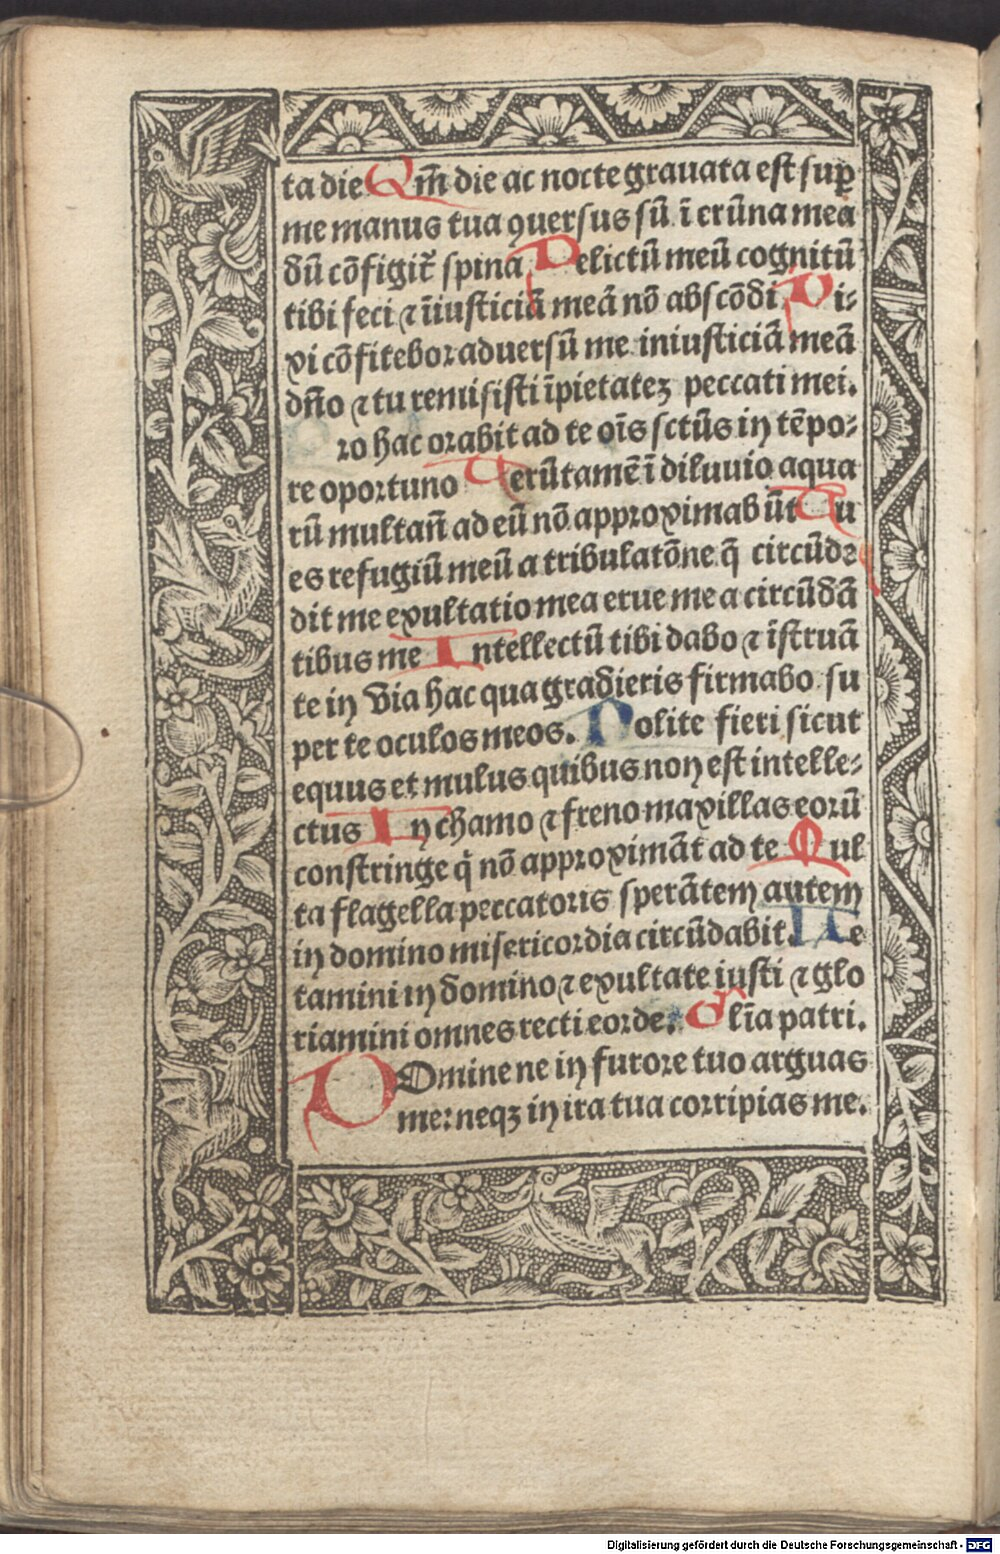 ta die Qm̄ die ac nocte grauata est sup̱
me manus tua ꝯuersus sū ī erūna mea
dū cōfigit᷑ spina Delictū meū cognitū
tibi feci ⁊ īiusticiā meā nō abscōdi Di⸗
xi cōfitebor aduersū me iniusticiā meā
dn̄o ⁊ tu remisisti īpietateꝫ peccati mei.
Pro hac orabit ad te oīs sctūs in tēpo⸗
re oportuno Uerūtamē ī diluuio aqua
rū multaꝝ ad eū nō approximabūt Tu
es refugiū meū a tribulatōne q̄ circūde
dit me exultatio mea erue me a circūdā
tibus me Intellectū tibi dabo ⁊ īstruā
te in via hac qua gradieris firmabo su
per te oculos meos. Nolite fieri sicut
equus et mulus quibus non est intelle⸗
ctus In chamo ⁊ freno maxillas eorū
constringe q̇ nō approximāt ad te Mul
ta flagella peccatoris sperātem autem
in domino misericordia circūdabit. Le
tamini in domino ⁊ exultate iusti ⁊ glo
riamini omnes recti corde. Gl̄ia patri.
DOmine ne in furore tuo arguas
me: neqꝫ in ira tua corripias me.
Digitalisierung gefördert durch die Deutsche Forschungsgemeinschaft - DFG